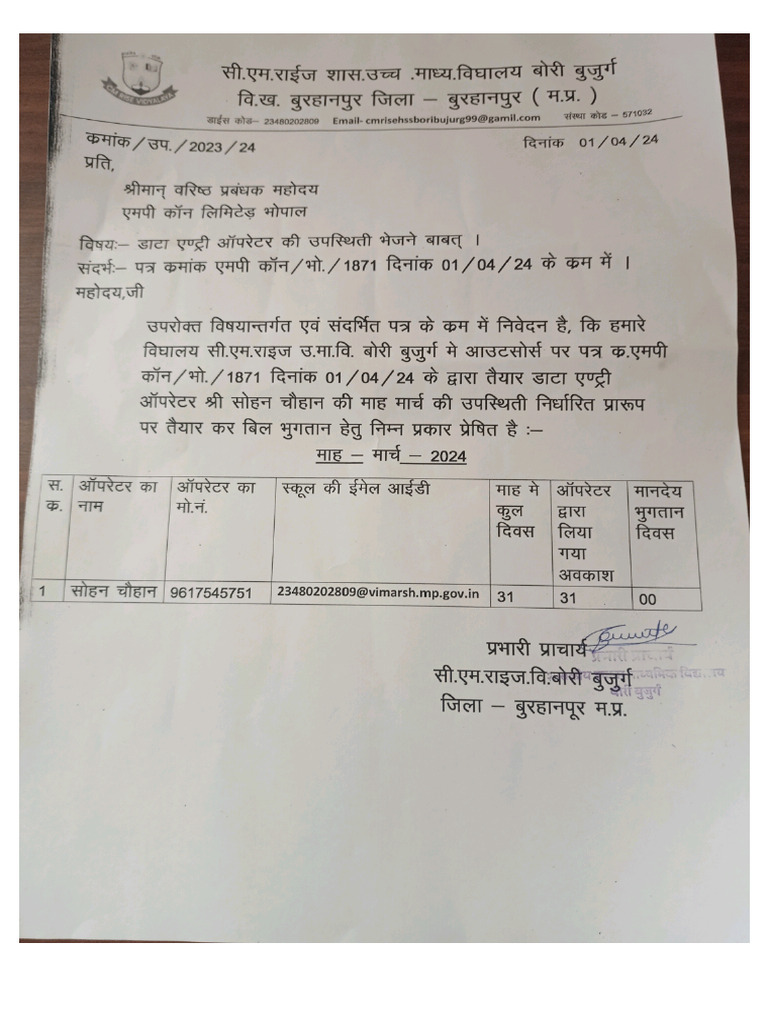 CM RISE VIDYALAYA
सी.एम.राईज शास.उच्च .माध्य.विघालय बोरी बुजुर्ग
वि.ख. बुरहानपुर जिला – बुरहानपुर ( म.प्र. )
डाईस कोड– 23480202809 Email- cmrisehssboribujurg99@gamil.com संस्था कोड – 571032
कमांक/उप./2023/24 दिनांक 01/04/24
प्रति,
श्रीमान् वरिष्ठ प्रबंधक महोदय
एमपी कॉन लिमिटेड़ भोपाल
विषयः– डाटा एण्ट्री ऑपरेटर की उपस्थिती भेजने बाबत् ।
संदर्भः– पत्र कमांक एमपी कॉन/भो./1871 दिनांक 01/04/24 के कम में ।
महोदय,जी
उपरोक्त विषयान्तर्गत एवं संदर्भित पत्र के कम में निवेदन है, कि हमारे
विघालय सी.एम.राइज उ.मा.वि. बोरी बुजुर्ग मे आउटसोर्स पर पत्र क.एमपी
कॉन/भो./1871 दिनांक 01/04/24 के द्वारा तैयार डाटा एण्ट्री
ऑपरेटर श्री सोहन चौहान की माह मार्च की उपस्थिती निर्धारित प्रारूप
पर तैयार कर बिल भुगतान हेतु निम्न प्रकार प्रेषित है :–
माह – मार्च – 2024
स. क. ऑपरेटर का नाम ऑपरेटर का मो.नं. स्कूल की ईमेल आईडी माह मे कुल दिवस ऑपरेटर द्वारा लिया गया अवकाश मानदेय भुगतान दिवस
1 सोहन चौहान 9617545751 23480202809@vimarsh.mp.gov.in 31 31 00
प्रभारी प्राचार्य
प्रभारी प्राचार्य
सी.एम.राइज.वि.बोरी बुजुर्ग
माध्यमिक विद्यालय
बोरी बुजुर्ग
जिला – बुरहानपूर म.प्र.